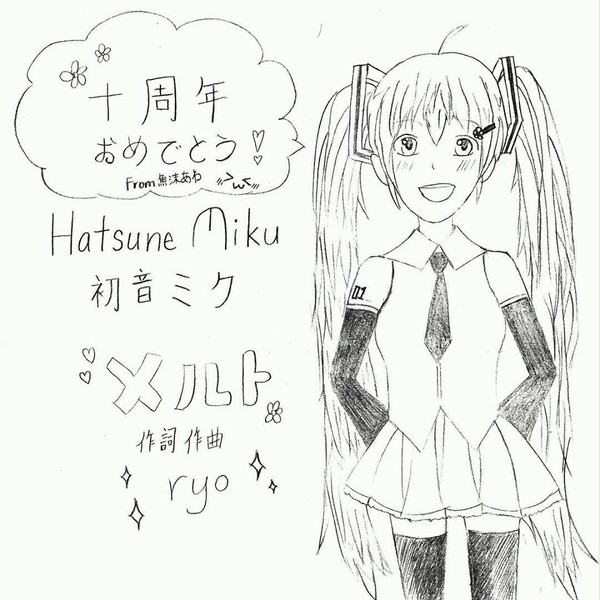 十周年
おめでとう!
From魚沫あわ >w<
Hatsune Miku
初音ミク
メルト
作詞作曲
ryo
01